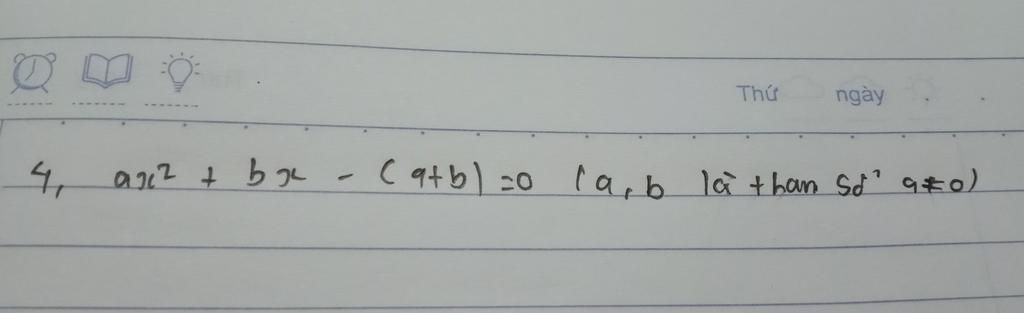 Thứ ngày
4, ax² + bx - (a+b) = 0 (a, b là tham số a ≠ 0)